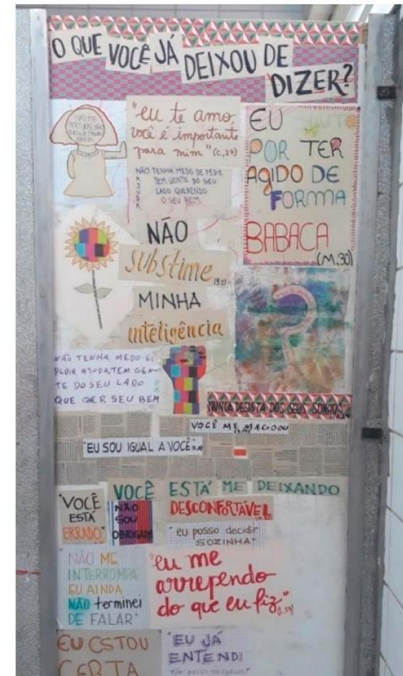 O QUE VOCÊ JÁ
DEIXOU DE
DIZER?
"eu te amo
você é importante
para mim" (C,24)
NÃO TENHA MEDO DE PEDIR
TEM GENTE DO SEU
LADO QUERENDO
O SEU BEM
AJUDA
EU
POR TER
AGIDO DE
FORMA
BABACA
(M,30)
NÃO
SUBSTIME
MINHA
inteligência
?
NÃO TENHA MEDO
PEDIR AJUDA, TEM GEN-
TE DO SEU LADO
QUE QER SEU BEM
NUNCA DESISTA DOS SEUS SONHOS
VOCÊ ME MAGOOU
"EU SOU IGUAL A VOCÊ"
VOCÊ ESTÁ ME DEIXANDO
DESCONFORTÁVEL
"VOCÊ
ESTÁ
ERRADO"
NÃO
SOU
OBRIGADA
"eu posso decidir
SOZINHA"
NÃO ME
INTERROMPA
EU AINDA
NÃO terminei
DE FALAR"
"eu me
arrependo
do que eu fiz"
EU ESTOU
CERTA
"EU JÁ
ENTENDI